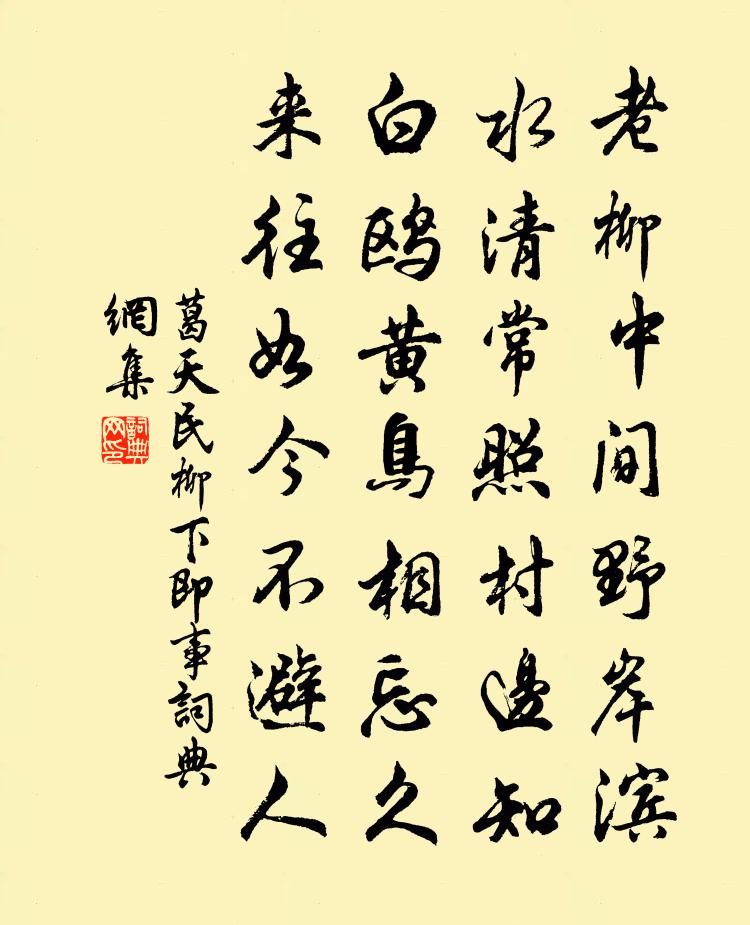 老柳中间野岸滨
水清常照村邊知
白鸥黄鳥相忘久
来往如今不避人
葛天民柳下即事詞典
網集
詞典
网印